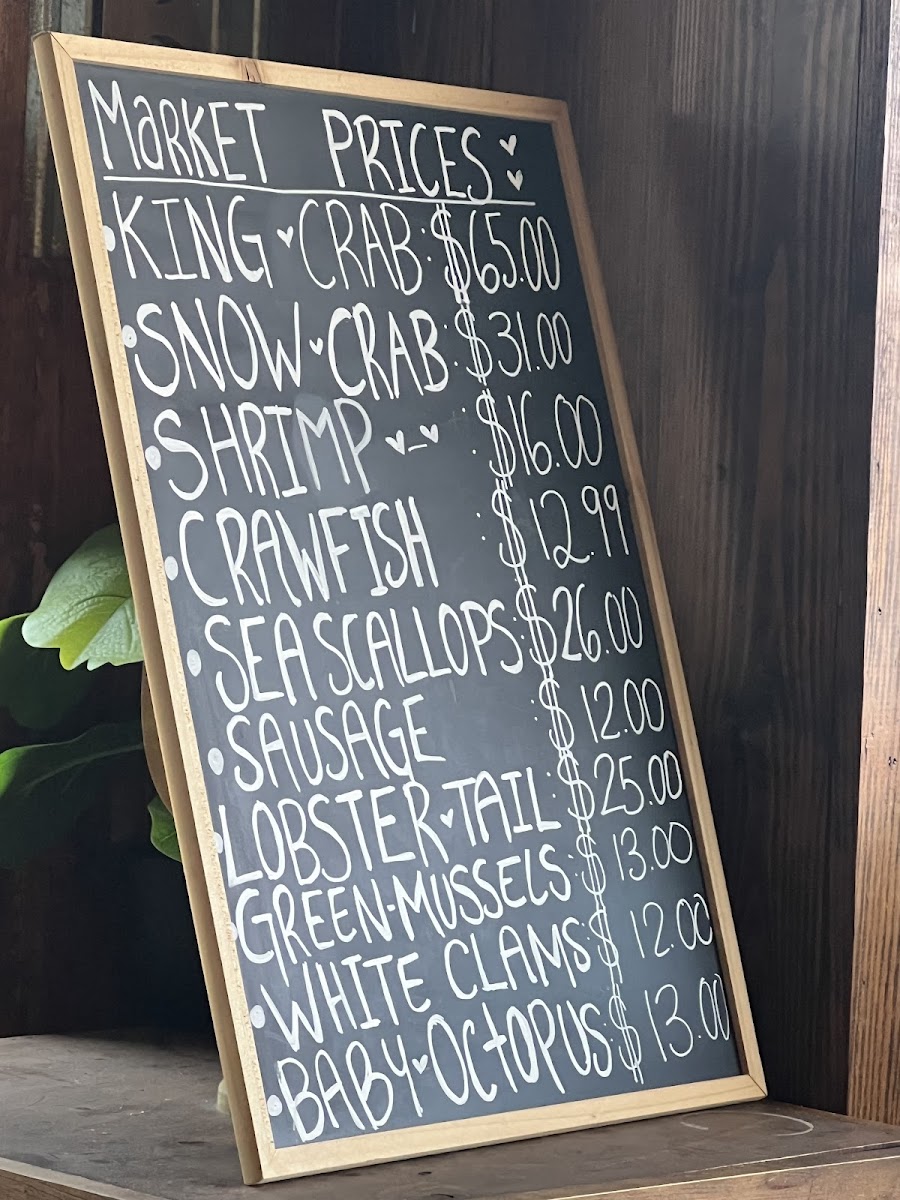 MARKET PRICES
• KING CRAB: $65.00
• SNOW CRAB: $31.00
• SHRIMP - : $16.00
• CRAWFISH : $12.99
• SEA SCALLOPS: $26.00
• SAUSAGE : $12.00
• LOBSTER TAIL: $25.00
• GREEN-MUSSELS: $13.00
• WHITE CLAMS: $12.00
• BABY OCTOPUS: $13.00